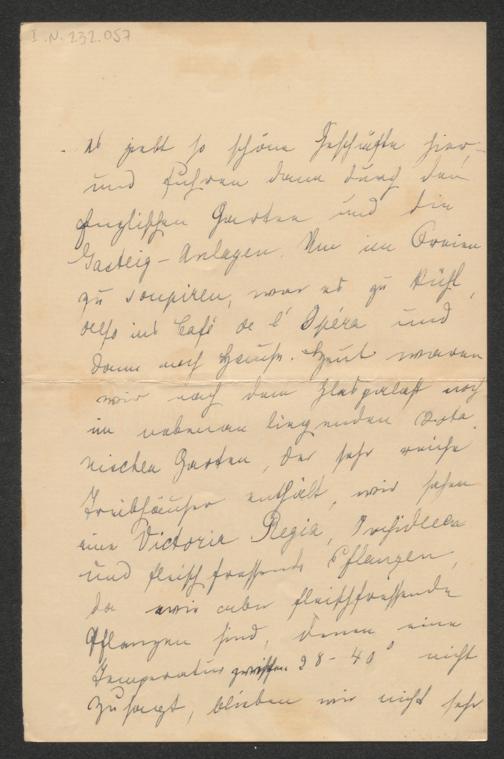 I.N. 232.057
es giebt so schöne Geschäfte hier,
und fuhren dann durch den
Englischen Garten und die
Gasteig-Anlagen. Um im Freien
zu soupiren, war es zu kühl,
also ins Café de l'Opéra und
dann nach Hause. Heut waren
wir nach dem Glaspalast noch
im nebenan liegenden Bota
nischen Garten, der sehr reiche
Treibhäuser enthält, wir sahen
eine Victoria Regia, Orchideen
und fleischfressende Pflanzen,
da wir aber fleischfressende
Pflanzen sind, denen eine
Temperatur zwischen 28-40° nicht
zusagt, blieben wir nicht sehr